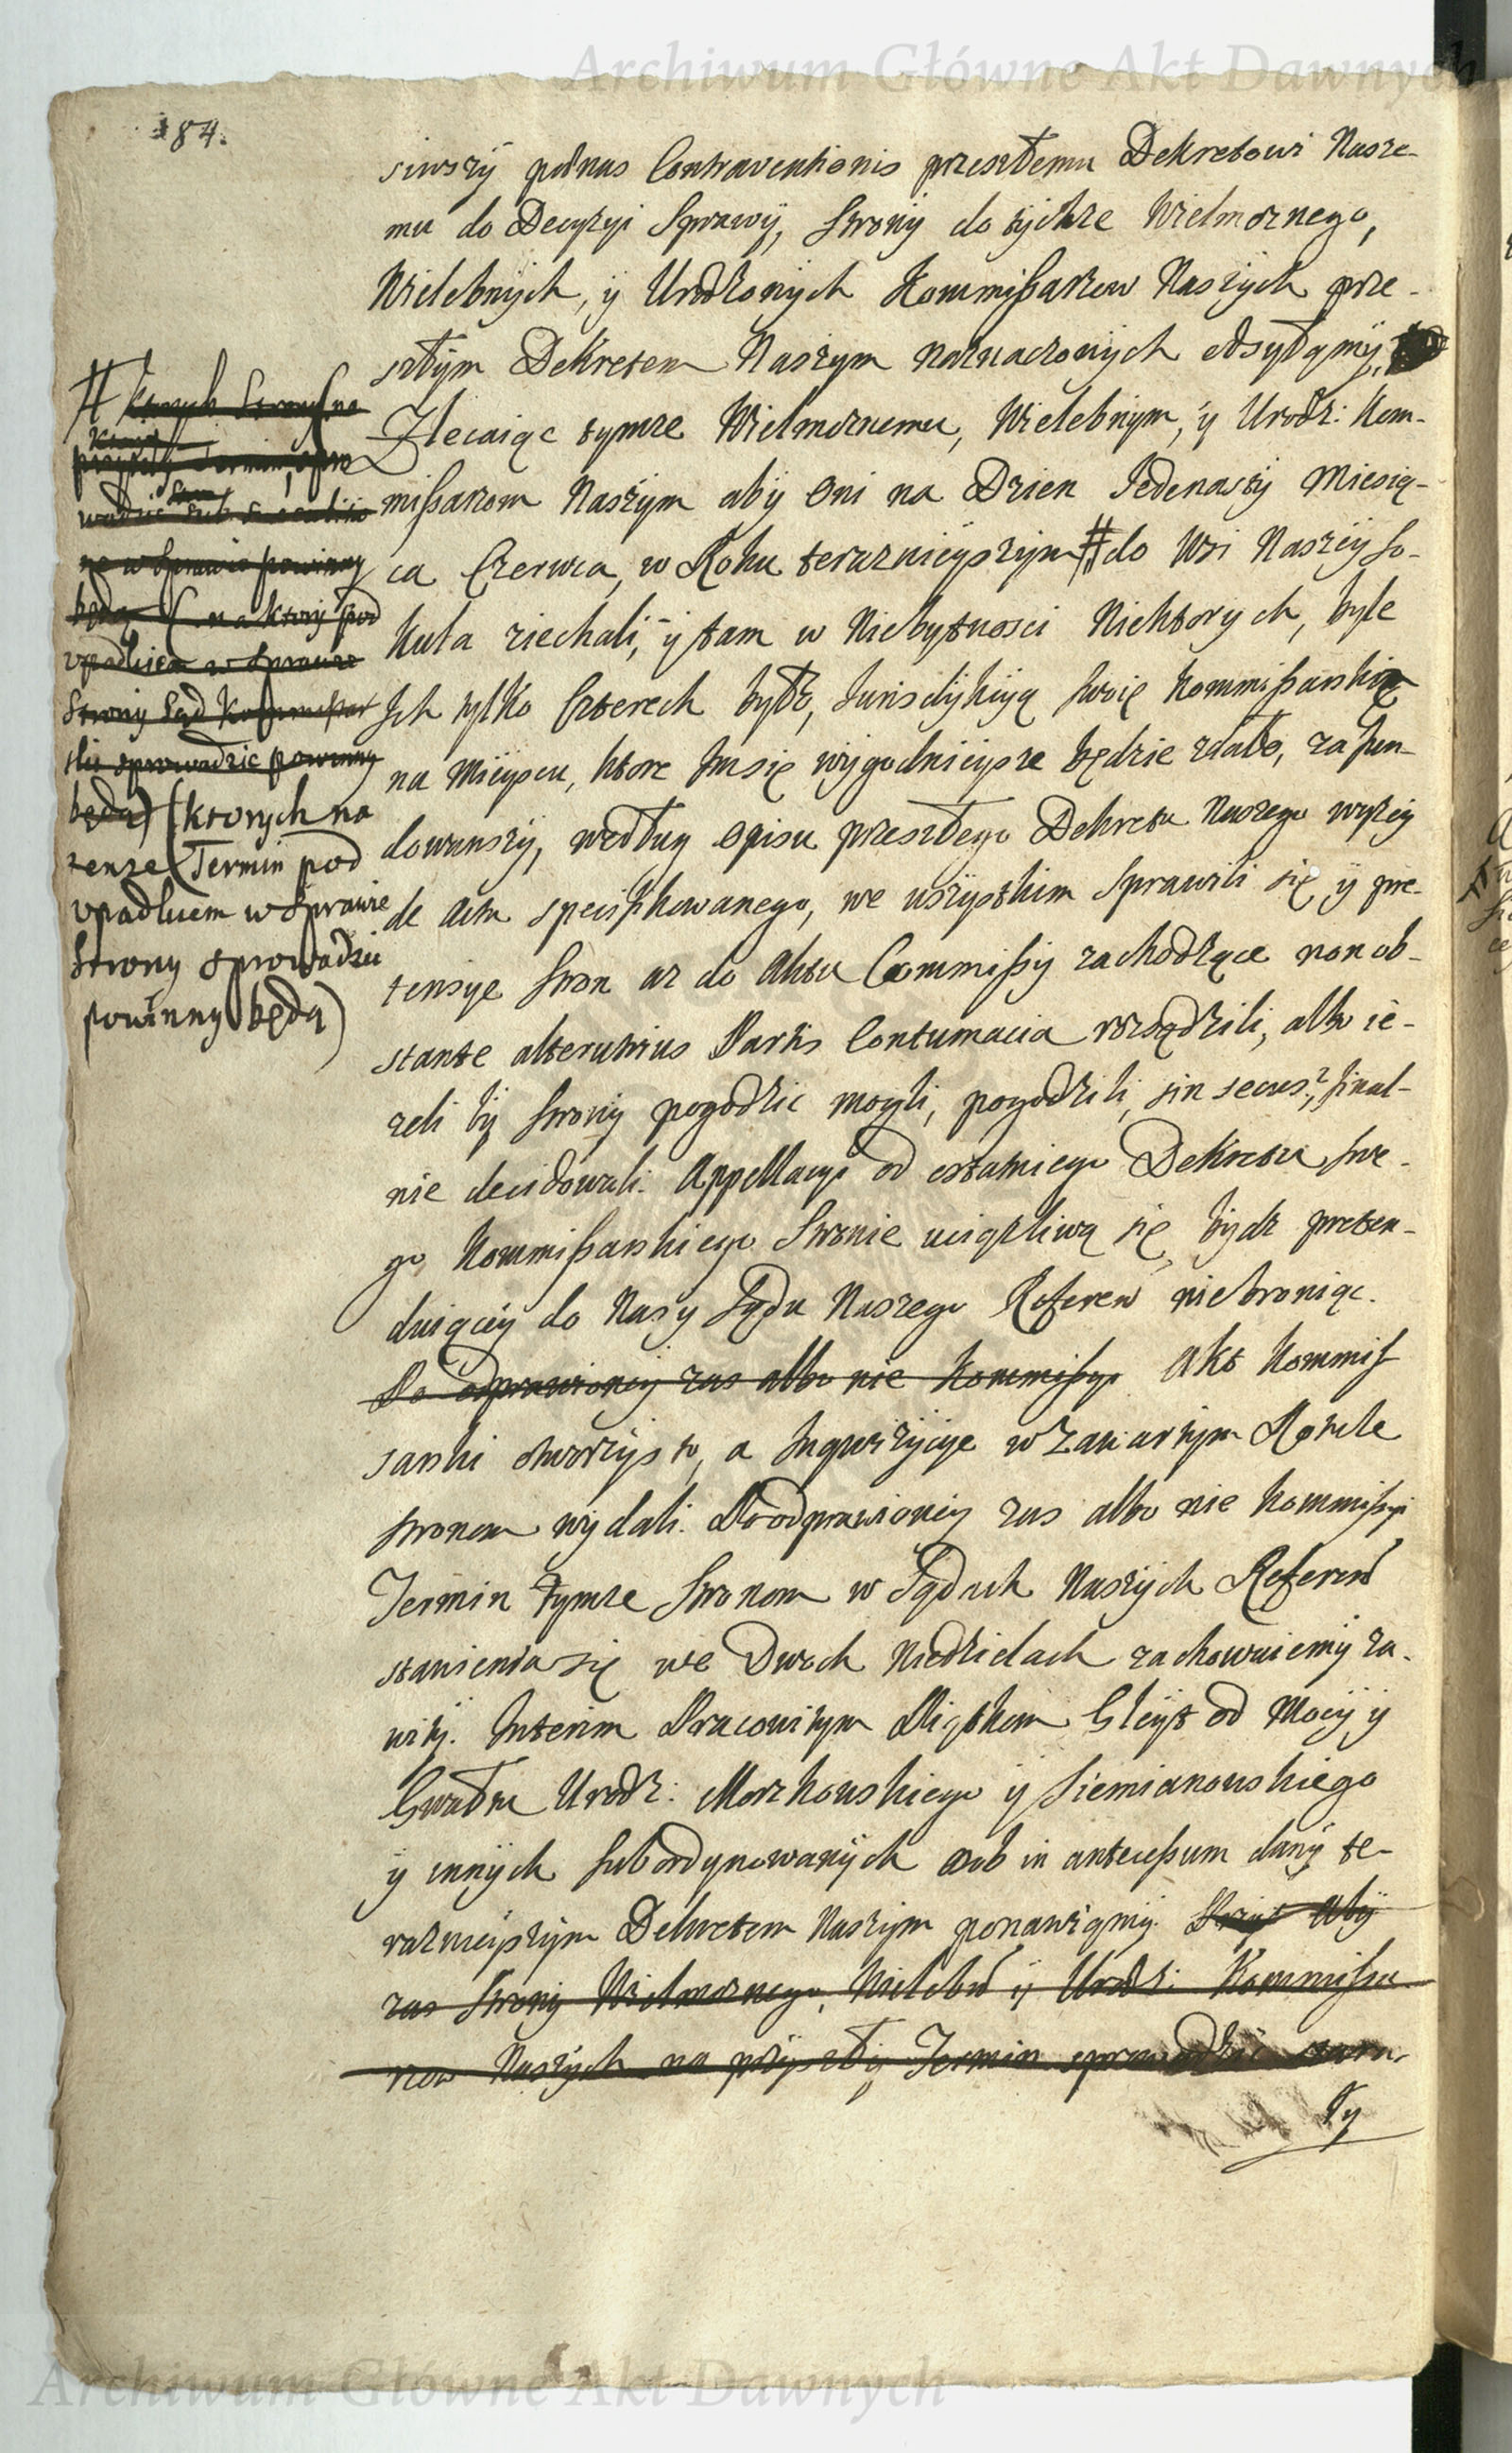 Archiwum Główne Akt Dawnych
184.
siwszÿ pœnas Contraventionis przeszłemu Dekretowi Nasze-
mu do Decyzyi Sprawÿ, Stronÿ do tÿchże Wielmożnego,
Wielebnÿch, ÿ Urodzonÿch Kommißarzow Naszÿch prze-
szłÿm Dekretem Naszym naznaczonÿch odsyłamÿ,
Zlecaiąc tymże Wielmożnemu, Wielebnÿm, ÿ Urodz: Kom-
mißarzom Naszÿm abÿ oni na Dzien Jedenastÿ Miesią-
ca Czerwca, w Roku terazniejszÿm # do Wsi Naszéÿ So-
kuła ziechali, ÿ tam w Niebytnosci Niektorÿch, byle
Ich tylko Czterech było, Jurisdÿkcyą swoię Kommißarską
na mieÿscu, ktore Im się wÿgodnieÿsze będzie zdało, zafun-
dowawszÿ, według opisu przeszłego Dekretu Naszego wyzeÿ
de actu specifikowanego, we wszÿstkim Sprawili się ÿ pre-
tensye stron az do Aktu Commißÿ zachodzące non ob-
stante alterutrius Partis Contumacia rozsądzili, albo ie-
zeli bÿ Stronÿ pogodzic mogli, pogodzili, sin secus, final-
nie decidowali. Appellacyi od ostatniego Dekretu swe-
go Kommißarskiego Stronie uciązliwą się bÿdz preten-
duiąceÿ do Nas ÿ Sądu Naszego Referen niebroniąc.
Po odprawioneÿ zas albo nie Kommißyi Akt Kommis
sarski otworzÿsto, a Inqwizÿcye w Zawartÿm Rotule
stronom wydali. Po odprawioneÿ zas albo nie Kommißyi
Termin tymże Stronom w Sądach Naszÿch Referen
stawienia się we Dwoch Niedzielach zachowuiemÿ za-
witÿ. Interim Pracowitym Gleÿt od Mocÿ ÿ
Gwałtu Urodz: Morzkowskiego ÿ Siemianowskiego
ÿ innÿch subordynowanÿch osob in antecessum danÿ te-
raznieÿszÿm Dekretem Naszÿm ponawiamÿ. Abÿ
zas Stronÿ Wielmoznego, Wieleb ÿ Urodz: Kommißa
rzow Naszÿch na przÿszłÿ Termin sprowadzic stara-
łÿ
# Ktorych Stronÿ na
przyszły Termin, spro
wadzic sub
ne w Sprawie powinny
będą ( na ktory pod
vpadkiem w Sprawie
Strony Sąd Kommissar
ski sprowadzic powinny
będą) (ktorych na
tenze Termin pod
vpadkiem w Sprawie
Strony sprowadzic
powinny będą)
Archiwum Główne Akt Dawnych